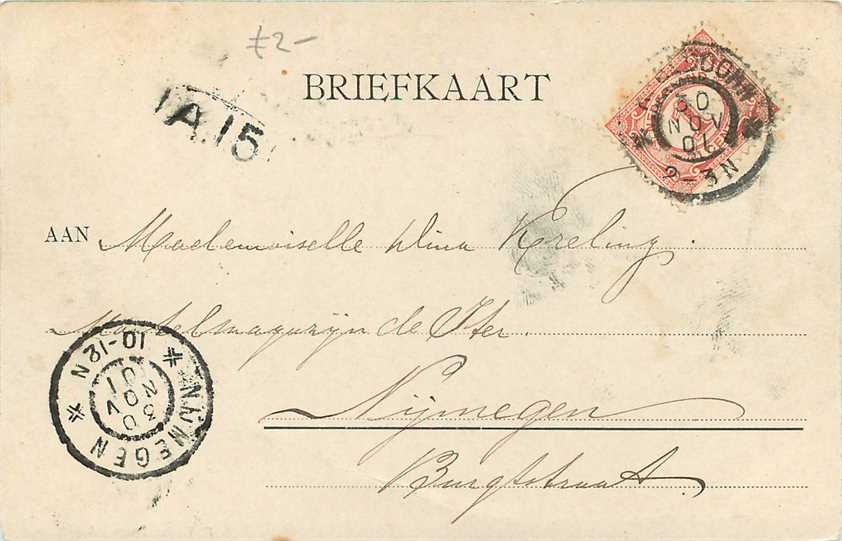 £2-
BRIEFKAART
A.15
30
NOV
01
2-3N
AAN Mademoiselle Dina Kreling.
Mantelmagazijn de Ster.
Nijmegen
Burgtstraat.
NIJMEGEN
10-12N
30
NOV
01